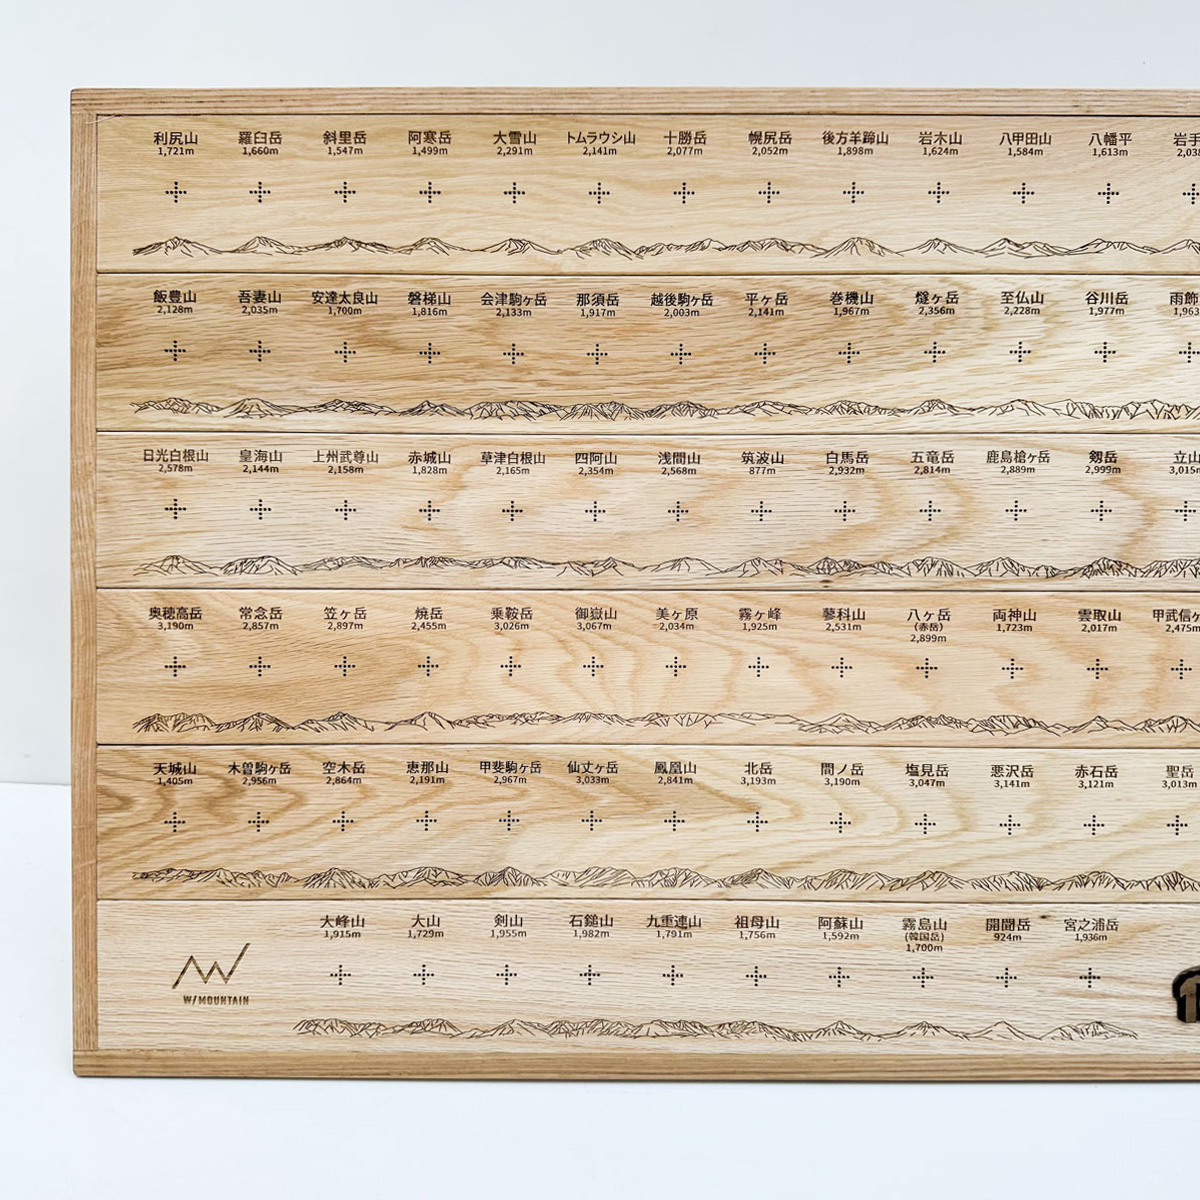 利尻山 羅臼岳 斜里岳 阿寒岳 大雪山 トムラウシ山 十勝岳 幌尻岳 後方羊蹄山 岩木山 八甲田山 八幡平 岩手
1,721m 1,660m 1,547m 1,499m 2,291m 2,141m 2,077m 2,052m 1,898m 1,624m 1,584m 1,613m 2,03
飯豊山 吾妻山 安達太良山 磐梯山 会津駒ヶ岳 那須岳 越後駒ヶ岳 平ヶ岳 巻機山 燧ヶ岳 至仏山 谷川岳 雨飾
2,128m 2,035m 1,700m 1,816m 2,133m 1,917m 2,003m 2,141m 1,967m 2,356m 2,228m 1,977m 1,963
日光白根山 皇海山 上州武尊山 赤城山 草津白根山 四阿山 浅間山 筑波山 白馬岳 五竜岳 鹿島槍ヶ岳 剱岳 立山
2,578m 2,144m 2,158m 1,828m 2,165m 2,354m 2,568m 877m 2,932m 2,814m 2,889m 2,999m 3,015m
奥穂高岳 常念岳 笠ヶ岳 焼岳 乗鞍岳 御嶽山 美ヶ原 霧ヶ峰 蓼科山 八ヶ岳 両神山 雲取山 甲武信ヶ
3,190m 2,857m 2,897m 2,455m 3,026m 3,067m 2,034m 1,925m 2,531m (赤岳) 1,723m 2,017m 2,475m
2,899m
天城山 木曽駒ヶ岳 空木岳 恵那山 甲斐駒ヶ岳 仙丈ヶ岳 鳳凰山 北岳 間ノ岳 塩見岳 悪沢岳 赤石岳 聖岳
1,405m 2,956m 2,864m 2,191m 2,967m 3,033m 2,841m 3,193m 3,190m 3,047m 3,141m 3,121m 3,013m
大峰山 大山 剣山 石鎚山 九重連山 祖母山 阿蘇山 霧島山 開聞岳 宮之浦岳
1,915m 1,729m 1,955m 1,982m 1,791m 1,756m 1,592m (韓国岳) 924m 1,936m
1,700m
W/MOUNTAIN